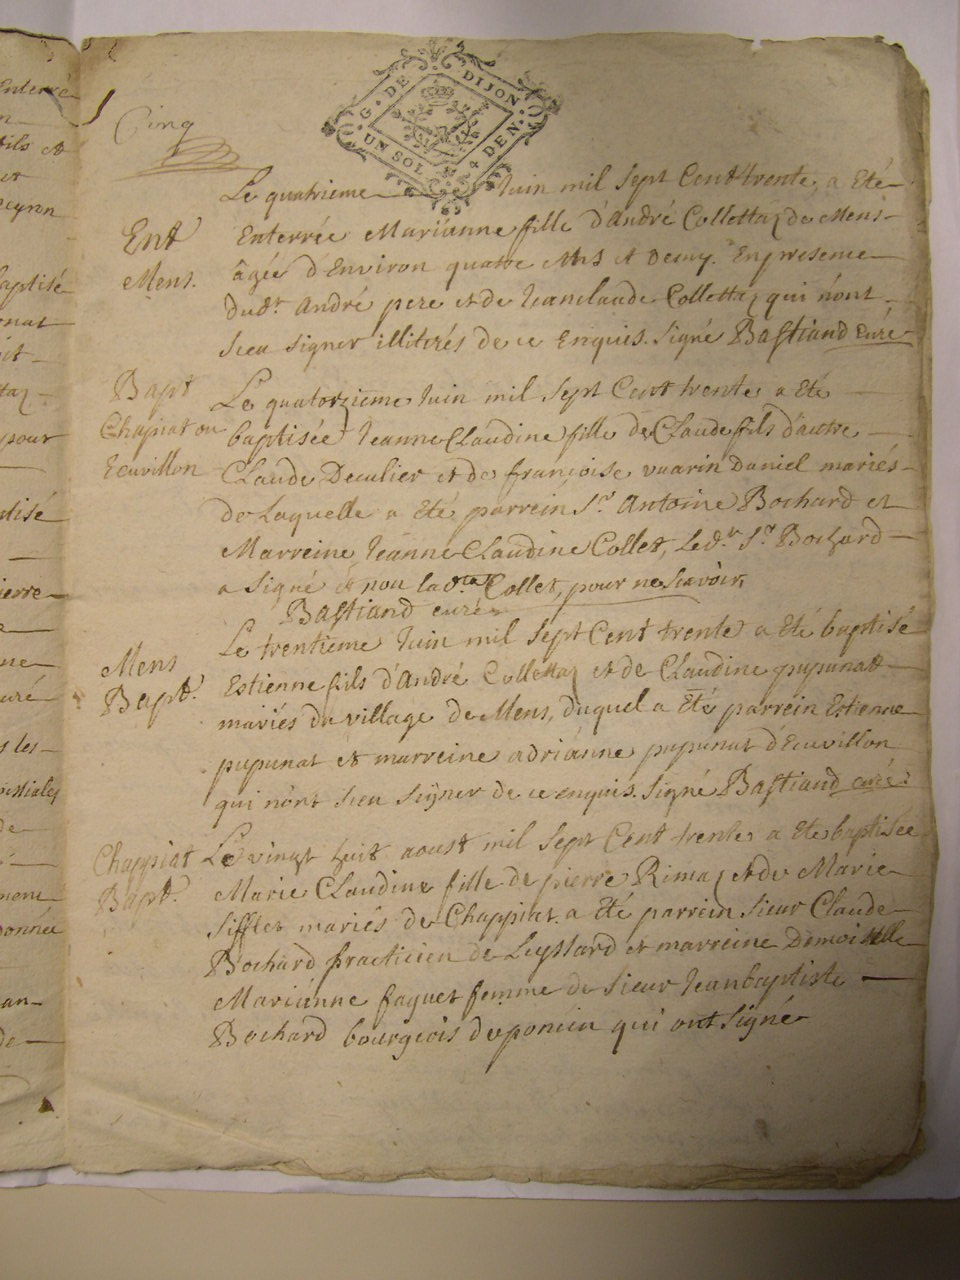 Cinq
G. DE DIJON
UN SOL 4 DEN.
Le quatrieme Juin mil sept Cent trente, a Eté
Ent Enterrée Marianne fille d'André Collettaz de Mens
Mens. âgée d'Environ quatre Ans et Demy. En presence
dud.r André pere et de Jeanclaude Collettaz qui nónt
sceu signer illiterés de ce Enquis. Signé Bastiand Curé
Bapt Le quatorzieme Juin mil sept Cent trente a Eté
Chapiat ou baptisée Jeanne Claudine fille de Claude fils d'autre
Ecuvillon Claude Decalier et de françoise vuarin Daniel mariés
de Laquelle a Eté parrein S.r Antoine Bochard et
Marreine Jeanne Claudine Collet, Led.r S.r Bochard
a signé et non lad.te Collet, pour ne scavoir,
Bastiand curé
Le trentieme Juin mil sept Cent trente a Eté baptisé
Mens Estienne fils d'André Collettaz et de Claudine pupunat
Bapt. mariés du village de Mens, duquel a Eté parrein Estienne
pupunat et marreine adriánne pupunat d'Ecuvillon
qui nónt sceu signer de ce enquis. Signé Bastiand curé
Chappiat Le vingt huit aoust mil sept Cent trente a Eté baptisée
Bapt. Marie Claudine fille de pierre Rimaz et de Marie
Sifflet mariés de Chappiat. a Eté parrein Sieur Claude
Bochard practicien de Leyssard et marreine Demoiselle
Mariánne faguet femme de Sieur Jeanbaptiste
Bochard bourgeois de poncin qui ont signé